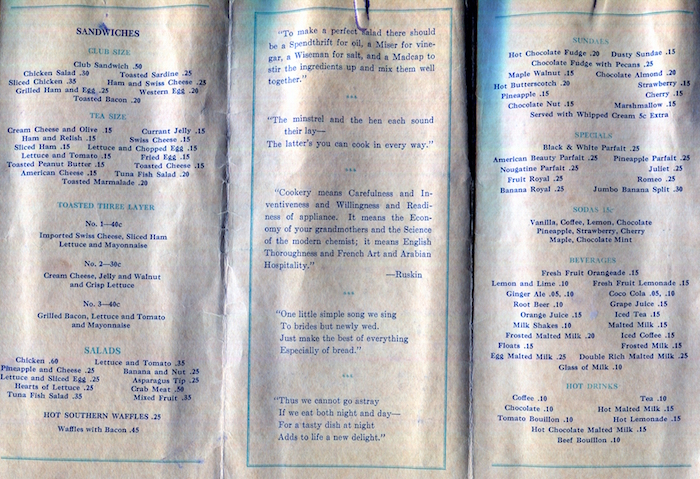 SANDWICHES
CLUB SIZE
Club Sandwich .50
Chicken Salad .30 Toasted Sardine .25
Sliced Chicken .35 Ham and Swiss Cheese .25
Grilled Ham and Egg .25 Western Egg .20
Toasted Bacon .20
TEA SIZE
Cream Cheese and Olive .15 Currant Jelly .15
Ham and Relish .15 Swiss Cheese .15
Sliced Ham .15 Lettuce and Chopped Egg .15
Lettuce and Tomato .15 Fried Egg .15
Toasted Peanut Butter .15 Toasted Cheese .15
American Cheese .15 Tuna Fish Salad .20
Toasted Marmalade .20
TOASTED THREE LAYER
No. 1—40c
Imported Swiss Cheese, Sliced Ham
Lettuce and Mayonnaise
No. 2—30c
Cream Cheese, Jelly and Walnut
and Crisp Lettuce
No. 3—40c
Grilled Bacon, Lettuce and Tomato
and Mayonnaise
SALADS
Chicken .60 Lettuce and Tomato .35
Pineapple and Cheese .25 Banana and Nut .25
Lettuce and Sliced Egg .25 Asparagus Tip .25
Hearts of Lettuce .25 Crab Meat .50
Tuna Fish Salad .35 Mixed Fruit .35
HOT SOUTHERN WAFFLES .25
Waffles with Bacon .45
"To make a perfect salad there should
be a Spendthrift for oil, a Miser for vine-
gar, a Wiseman for salt, and a Madcap to
stir the ingredients up and mix them well
together."
***
"The minstrel and the hen each sound
their lay—
The latter's you can cook in every way."
***
"Cookery means Carefulness and In-
ventiveness and Willingness and Readi-
ness of appliance. It means the Econ-
omy of your grandmothers and the Science
of the modern chemist; it means English
Thoroughness and French Art and Arabian
Hospitality."
—Ruskin
***
"One little simple song we sing
To brides but newly wed.
Just make the best of everything
Especially of bread."
***
"Thus we cannot go astray
If we eat both night and day—
For a tasty dish at night
Adds to life a new delight."
SUNDAES
Hot Chocolate Fudge .20 Dusty Sundae .15
Chocolate Fudge with Pecans .25
Maple Walnut .15 Chocolate Almond .20
Hot Butterscotch .20 Strawberry .15
Pineapple .15 Cherry .15
Chocolate Nut .15 Marshmallow .15
Served with Whipped Cream 5c Extra
SPECIALS
Black & White Parfait .25
American Beauty Parfait .25 Pineapple Parfait .25
Nougatine Parfait .25 Juliet .25
Fruit Royal .25 Romeo .25
Banana Royal .25 Jumbo Banana Split .30
SODAS 15c
Vanilla, Coffee, Lemon, Chocolate
Pineapple, Strawberry, Cherry
Maple, Chocolate Mint
BEVERAGES
Fresh Fruit Orangeade .15
Lemon and Lime .10 Fresh Fruit Lemonade .15
Ginger Ale .05, .10 Coco Cola .05, .10
Root Beer .10 Grape Juice .15
Orange Juice .15 Iced Tea .15
Milk Shakes .10 Malted Milk .15
Frosted Malted Milk .20 Iced Coffee .15
Floats .15 Frosted Milk .15
Egg Malted Milk .25 Double Rich Malted Milk .25
Glass of Milk .10
HOT DRINKS
Coffee .10 Tea .10
Chocolate .10 Hot Malted Milk .15
Tomato Bouillon .10 Hot Lemonade .15
Hot Chocolate Malted Milk .15
Beef Bouillon .10